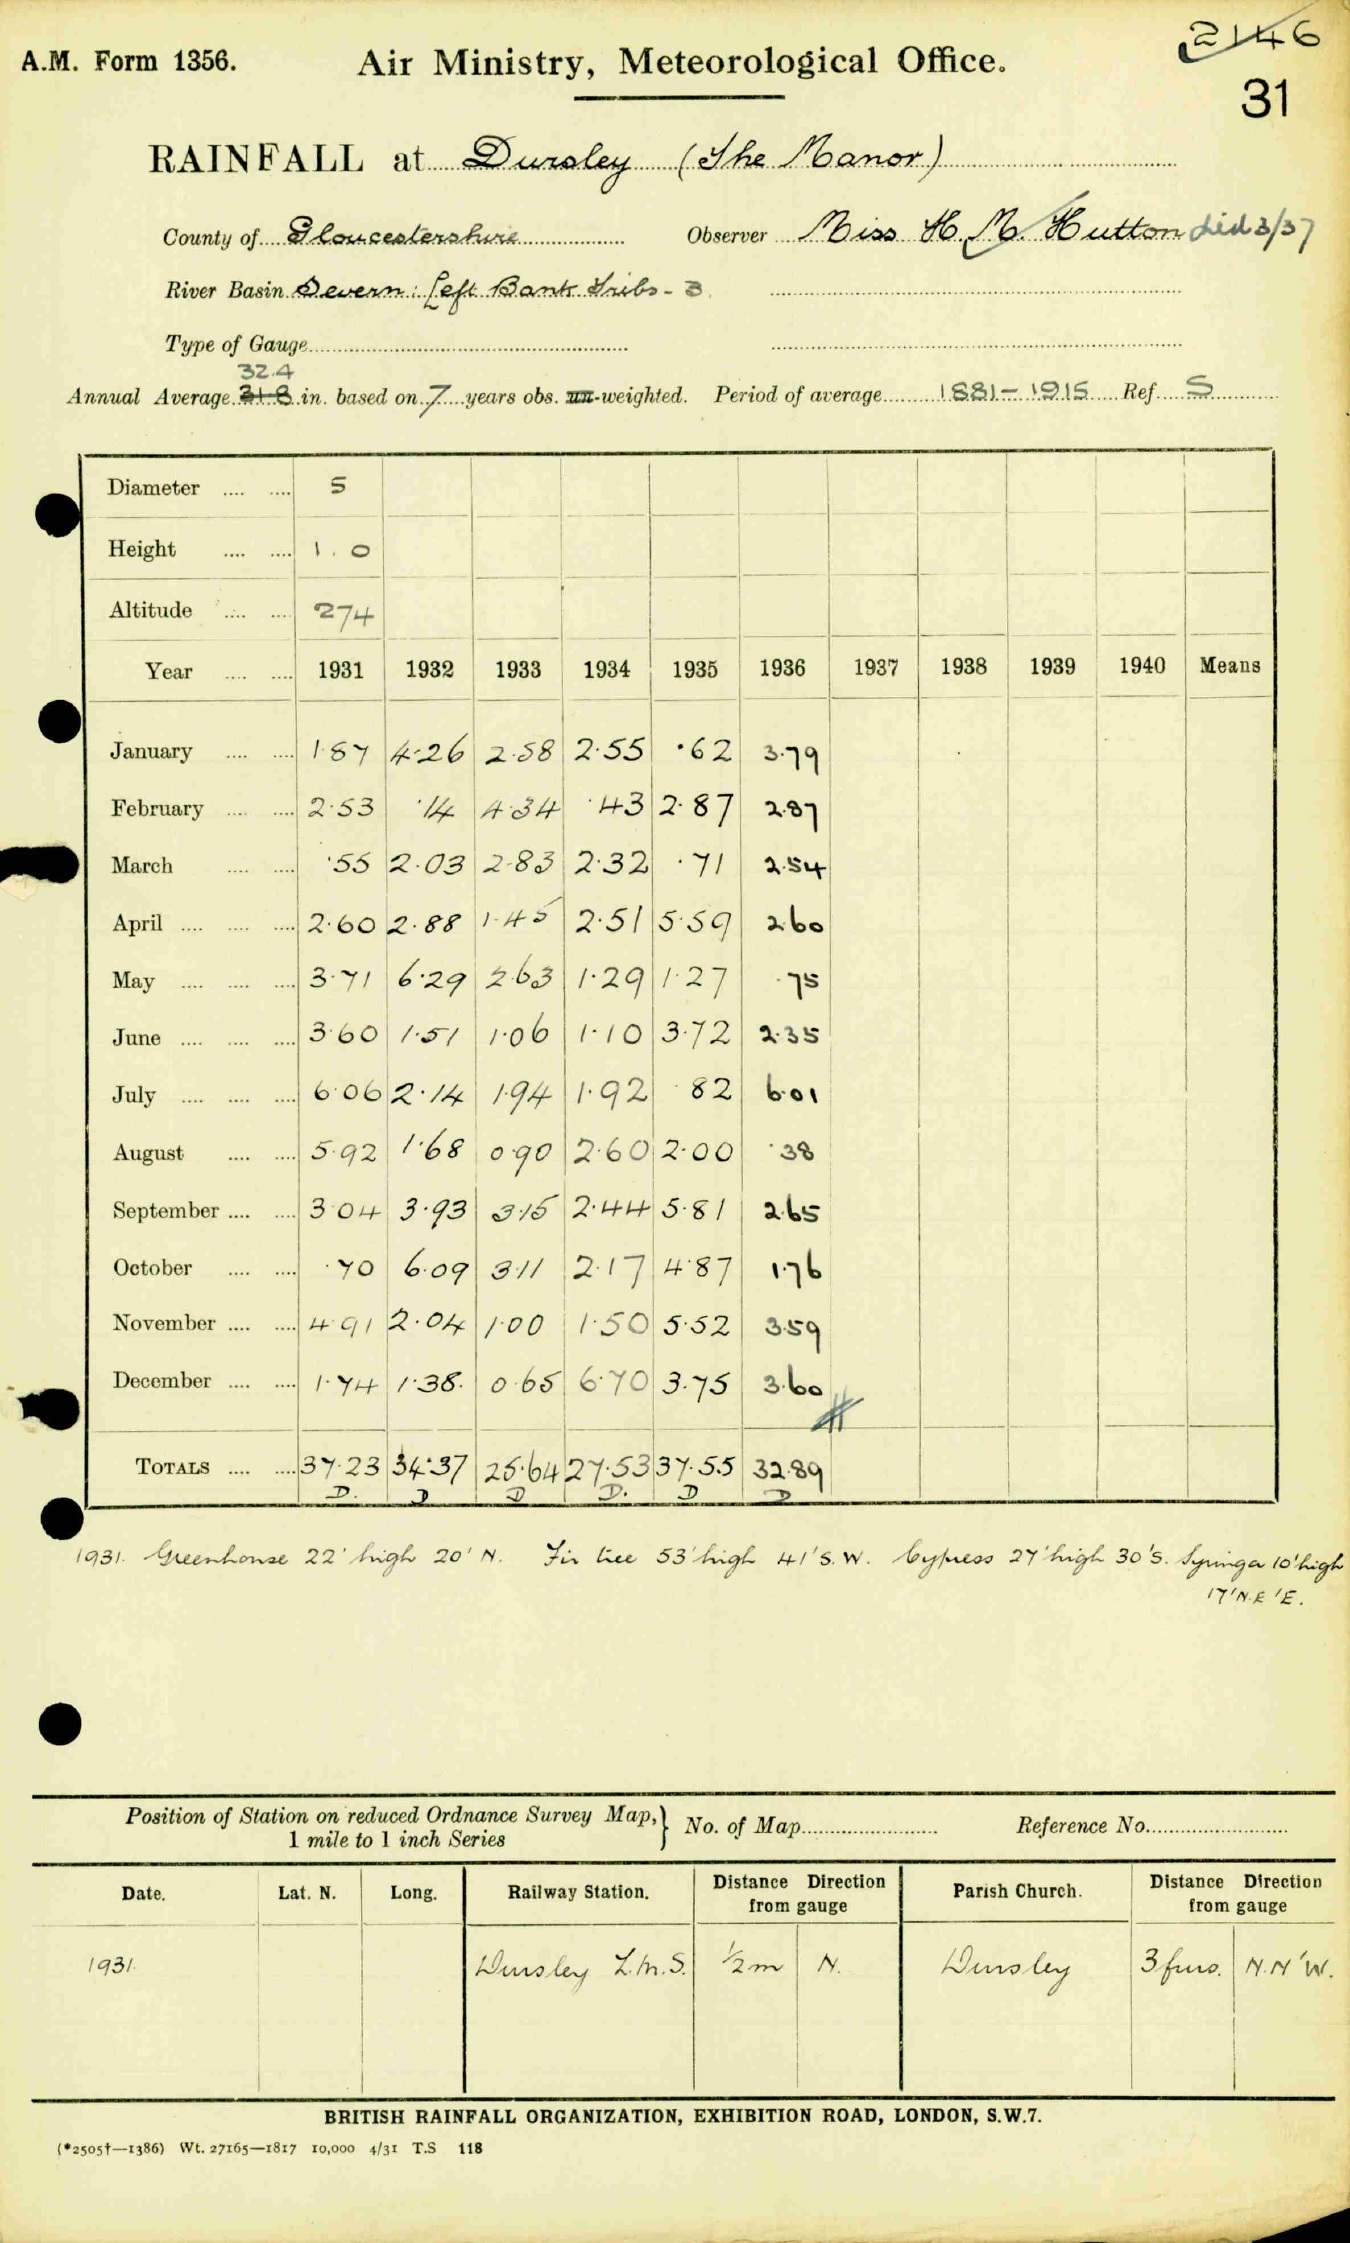 2146
A.M. Form 1356.
Air Ministry, Meteorological Office.
31
RAINFALL at Dursley (The Manor)
County of Gloucestershire Observer Miss H. M. Hutton died 3/37
River Basin Severn: Left Bank Tribs - B.
Type of Gauge
32.4
Annual Average 31.8 in. based on 7 years obs. -weighted. Period of average 1881-1915 Ref. S
Diameter 5
Height 1.0
Altitude 274
Year 1931 1932 1933 1934 1935 1936 1937 1938 1939 1940 Means
January 1.87 4.26 2.58 2.55 .62 3.79
February 2.53 .14 4.34 .43 2.87 2.87
March .55 2.03 2.83 2.32 .71 2.54
April 2.60 2.88 1.45 2.51 5.59 2.60
May 3.71 6.29 2.63 1.29 1.27 .75
June 3.60 1.51 1.06 1.10 3.72 2.35
July 6.06 2.14 1.94 1.92 .82 6.01
August 5.92 1.68 0.90 2.60 2.00 .38
September 3.04 3.93 3.15 2.44 5.81 2.65
October .70 6.09 3.11 2.17 4.87 1.76
November 4.91 2.04 1.00 1.50 5.52 3.59
December 1.74 1.38 0.65 6.70 3.75 3.60
TOTALS 37.23 34.37 25.64 27.53 37.55 32.89
D. D D D. D D
1931. Greenhouse 22' high 20' N. Fir tree 53' high 41' S.W. Cypress 27' high 30' S. Syringa 10' high
17' N.E'E.
Position of Station on reduced Ordnance Survey Map,
1 mile to 1 inch Series } No. of Map Reference No.
Date. Lat. N. Long. Railway Station. Distance Direction from gauge Parish Church. Distance Direction from gauge
1931. Dursley L.M.S. ½ m N. Dursley 3 furs. N.N'W.
BRITISH RAINFALL ORGANIZATION, EXHIBITION ROAD, LONDON, S.W.7.
(*2505†—1386) Wt. 27165—1817 10,000 4/31 T.S 118